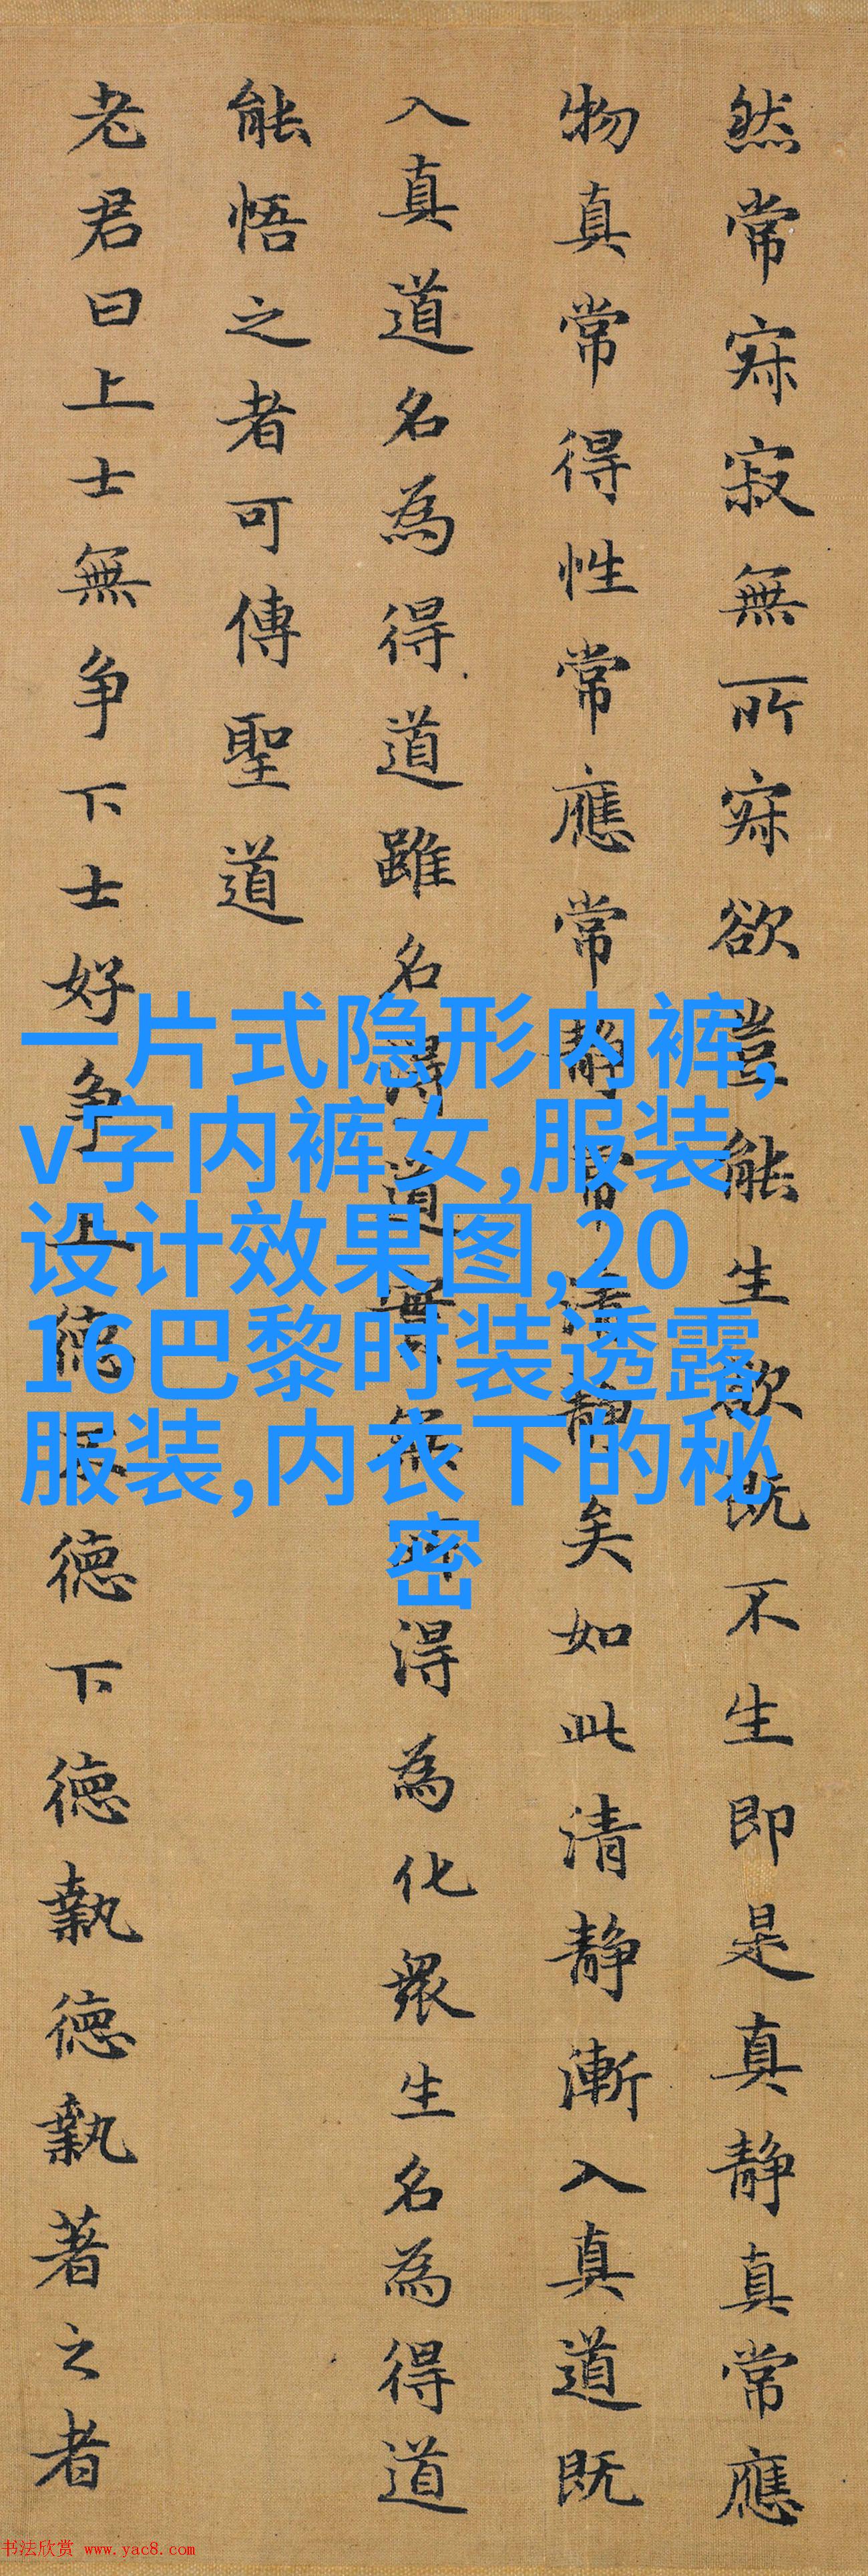 然常寂寂無所寂欲豈能生欲既不生即是真静真常應
物真常得性常應常静常清静矣如此清静漸入真道既
入真道名為得道雖名得道實無所得為化衆生名為得道
能悟之者可傳聖道
老君曰上士無争下士好争上德不德下德執德執著之者
一片式隐形内裤,
v字内裤女,服装
设计效果图,20
16巴黎时装透露
服装,内衣下的秘
密
书法欣赏 www.yac8.com